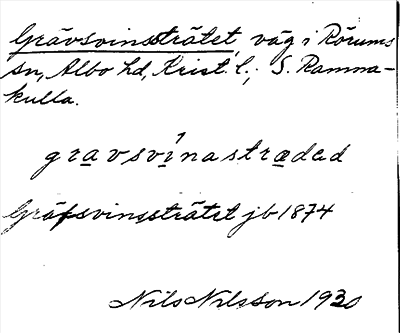 Grävsvinssträtet, väg i Rörums
sn, Albo hd, Krist. l.; S. Ramma-
kulla.
gravsvínastrædad
Gräfsvinssträtet jb 1874
Nils Nilsson 1930